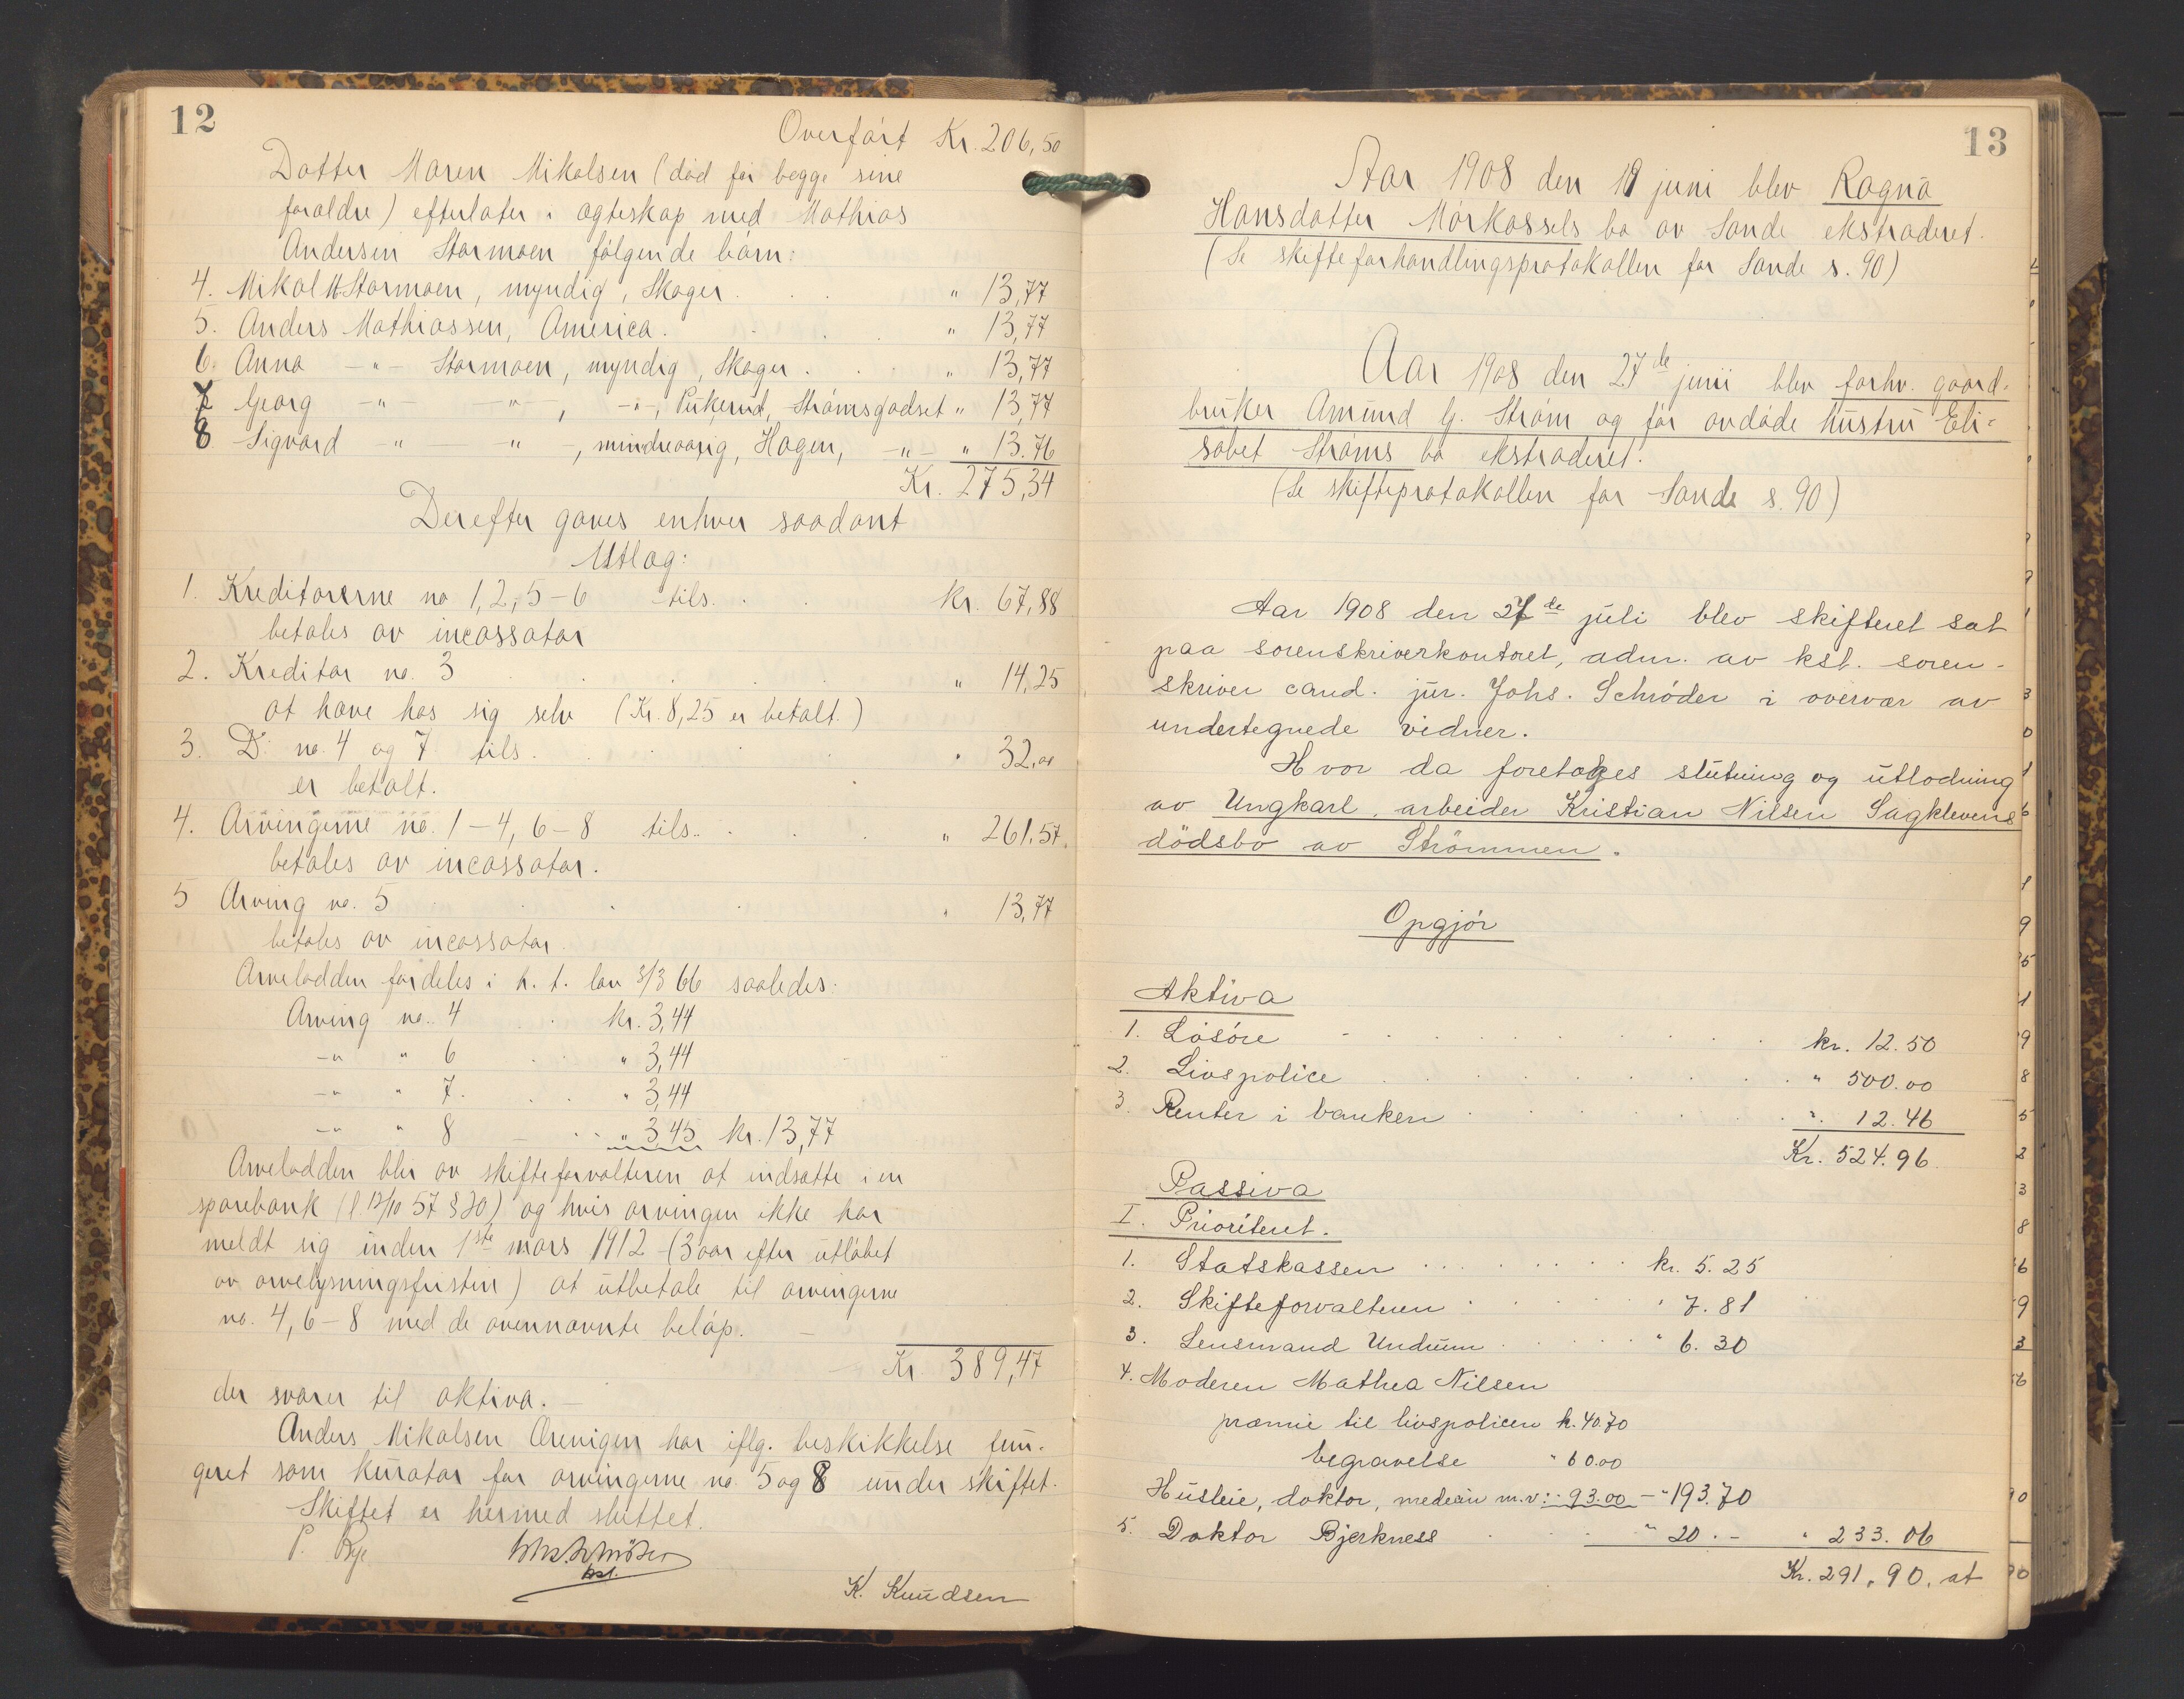 12
Overført Kr. 206,50
Datter Maren Mikalsen (død før begge sine
forældre) efterlater i ægteskap med Mathias
Andersen Stormoen følgende børn:
4. Mikal M. Stormoen, myndig, Skoger . . . " 13,77
5. Anders Mathiassen, America. . . " 13,77
6. Anna -"- Stormoen, myndig, Skoger . . . " 13,77
7 Georg -"- -"-, -"-, Pukerud, Strømsgodset " 13,77
8 Sigvard -"- -"-, mindreaarig, Hagen, -"- " 13.76
Kr. 275,34
Derefter gaves enhver saadant
Utlæg:
1. Kreditorerne no 1, 2, 5-6 tils. . . kr. 67,88
betales av incassator
2. Kreditor no. 3 . . . . " 14,25
at have hos sig selv (Kr. 8,25 er betalt.)
3. Do no. 4 og 7 tils. . . . " 32,00
er betalt.
4. Arvingerne no. 1-4, 6-8 tils. . . . " 261,57.
betales av incassator.
5 Arving no. 5 . . . . " 13,77
betales av incassator.
Arvelodden fordeles i h. t. lov 3/3 66 saaledes:
Arving no. 4 . . kr. 3,44
-"- " 6 . . " 3,44
-"- " 7. . . " 3,44
-"- " 8 - . . " 3,45 kr. 13,77
Arvelodden blir av skifteforvalteren at indsætte i en
sparebank (l 12/10 57 § 20) og hvis arvingen ikke har
meldt sig inden 1ste mars 1912 - (3 aar efter utløbet
av arvelysningsfristen) at utbetale til arvingerne
no. 4, 6-8 med de ovennævnte beløp. -
Kr. 389,47
der svarer til aktiva. -
Anders Mikalsen Ørenigen har iflg. beskikkelse fun-
geret som kurator for arvingerne no. 5 og 8 under skiftet.
Skiftet er hermed sluttet.
P. Rye
Johs. Schrøder
kst.
K. Knudsen
13
Aar 1908 den 19 juni blev Ragna
Hansdatter Mørkassels bo av Sande ekstraderet.
(Se skifteforhandlingsprotokollen for Sande s. 90)
Aar 1908 den 27de juni blev forhv. gaard-
bruker Amund G. Strøm og før avdøde hustru Eli-
sabet Strøms bo ekstraderet.
(Se skifteprotokollen for Sande s. 90)
Aar 1908 den 27de juli blev skifteret sat
paa sorenskriverkontoret, adm. av kst. soren-
skriver cand. jur. Johs. Schrøder i overvær av
undertegnede vidner.
Hvor da foretoges slutning og utlodning
av Ungkarl, arbeider Kristian Nilsen Sagklevens
dødsbo av Strømmen.
Opgjør
Aktiva
1. Løsøre . . . . kr. 12.50
2. Livspolice . . . . " 500.00
3. Renter i banken . . . . " 12.46
Kr. 524.96
Passiva
I. Prioritert.
1. Statskassen . . . . kr. 5.25
2. Skifteforvalteren . . . . " 7.81
3. Lensmand Undrum . . . . " 6.30
4. Moderen Mathea Nilsen
præmie til livspolicen k. 40.70
begravelse " 60.00
Husleie, doktor, medecin m.v: " 93.00 - " 193.70
5. Doktor Bjerkness . . . " 20. - " 233.06
Kr. 291,90, at